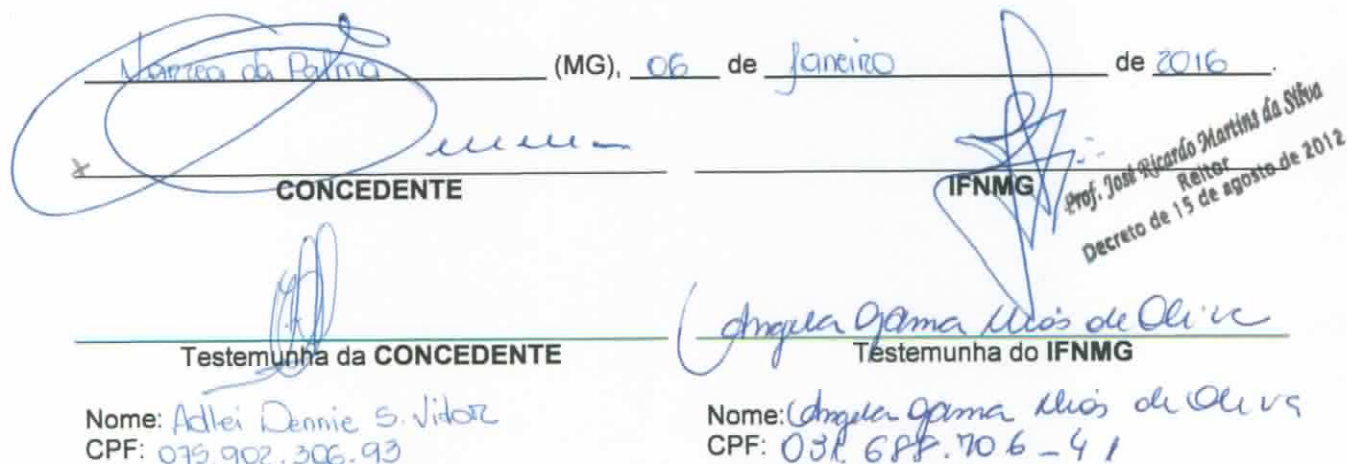 Varzea da Palma (MG), 06 de Janeiro de 2016.
CONCEDENTE
IFNMG
Prof. José Ricardo Martins da Silva
Reitor
Decreto de 15 de agosto de 2012
Angela Gama de
Testemunha da CONCEDENTE
Testemunha do IFNMG
Nome: Adlei Dennie S. Vitor
CPF: 075.902.306.93
Nome: Angela Gama de
CPF: 688.706-41